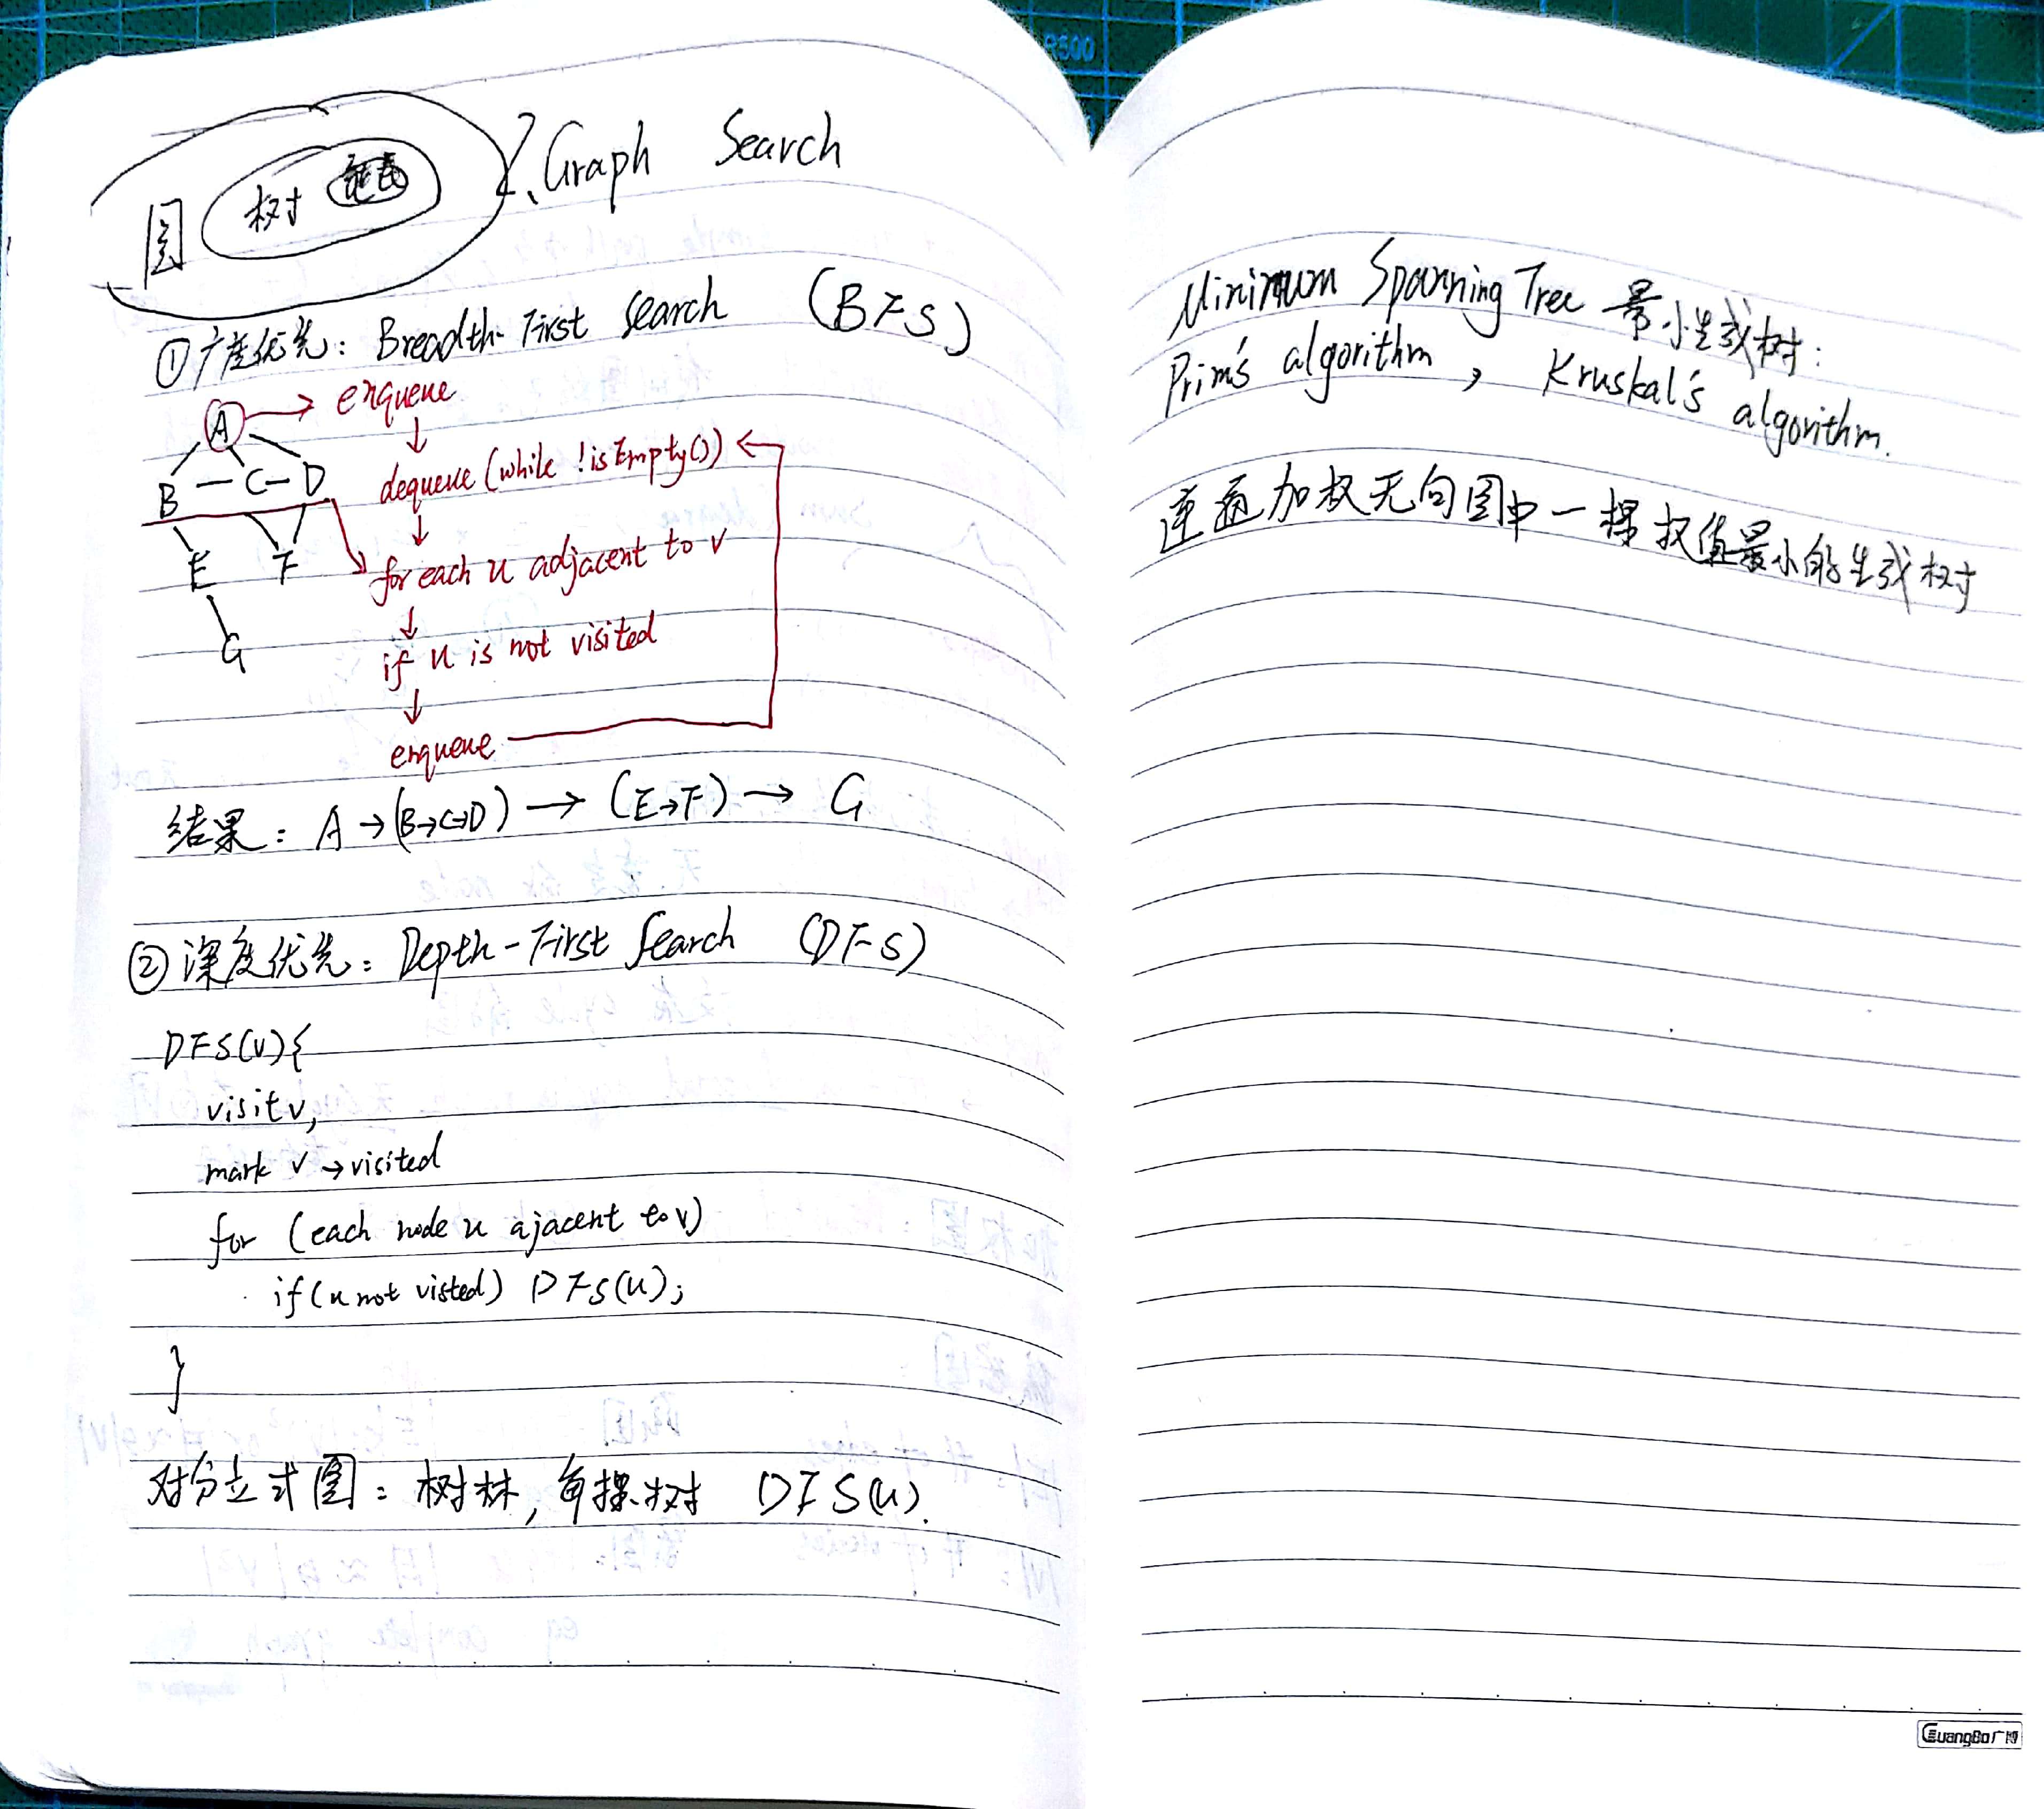 2. Graph Search
图 树 链表
① 广度优先: Breadth-First Search (BFS)
A → enqueue
↓
dequeue (while !isEmpty())
B — C — D
↓
for each u adjacent to v
E F
↓
if u is not visited
G
↓
enqueue
结果: A → (B→C→D) → (E→F) → G
② 深度优先: Depth-First Search (DFS)
DFS(v){
visit v,
mark v → visited
for (each node u ajacent to v)
if (u not visted) DFS(u);
}
对分立式图: 树林, 每棵树 DFS(u).
Minimum Spanning Tree 最小生成树:
Prim's algorithm, Kruskal's algorithm.
连通加权无向图中一棵权值最小的生成树
GuangBo广博